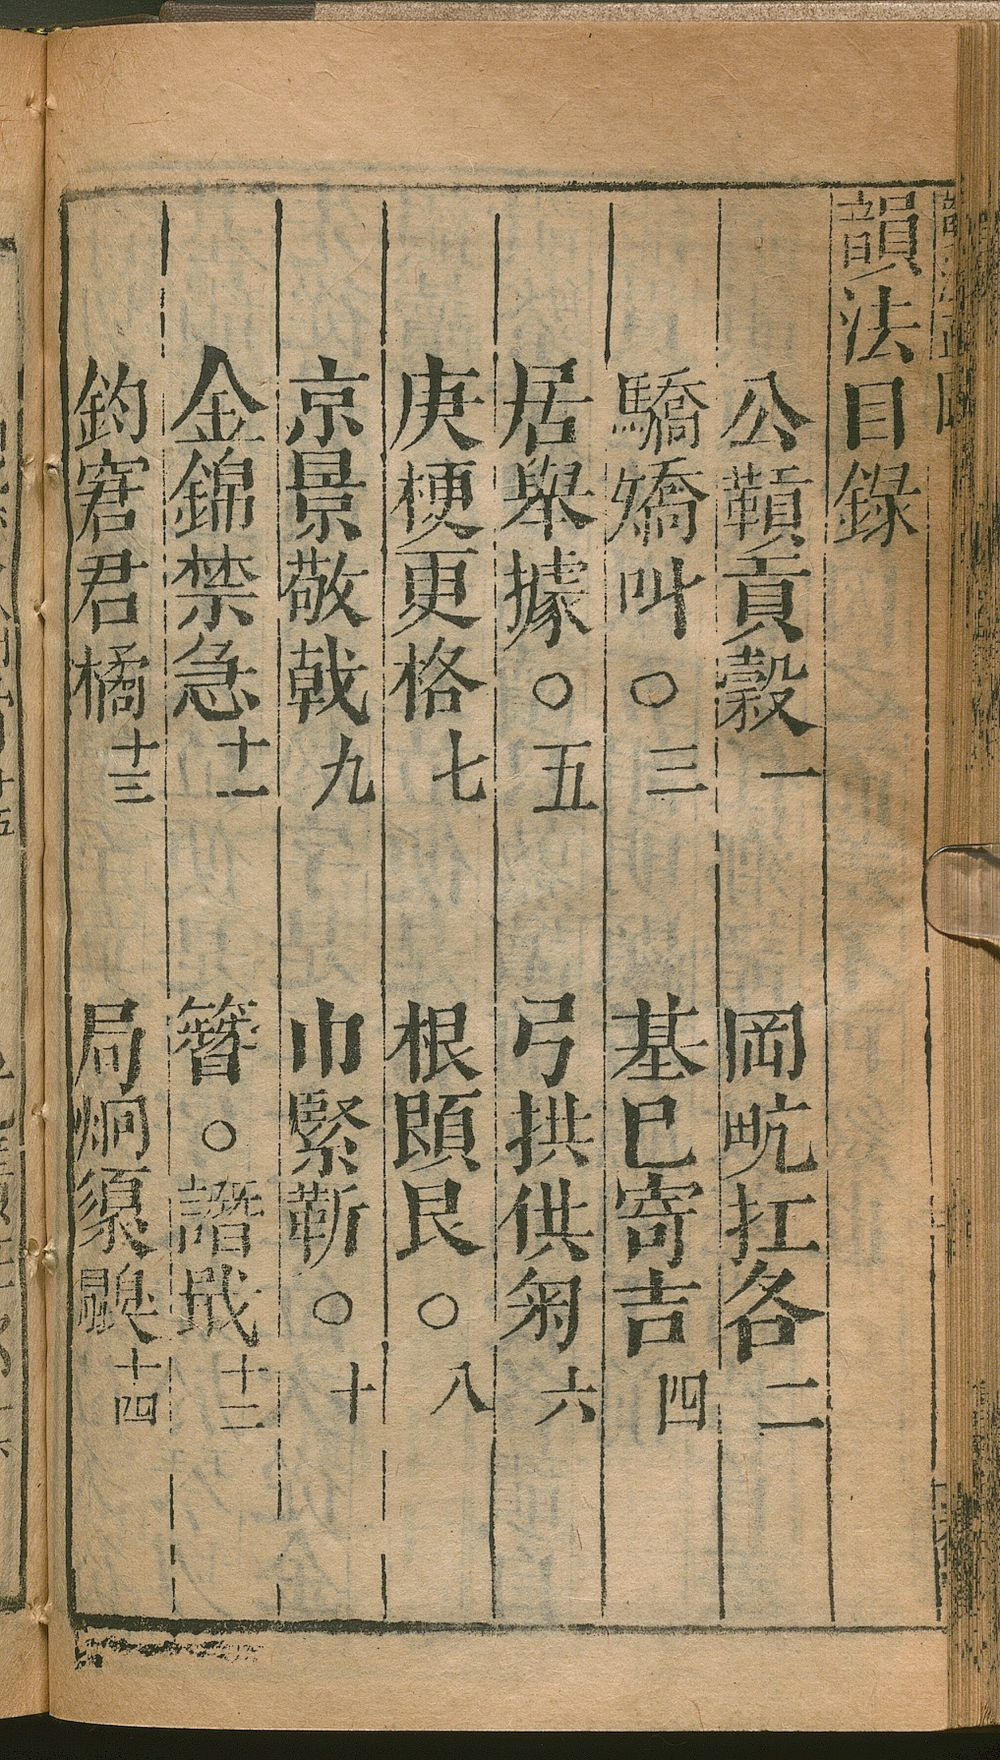 韻法目錄
公䩵貢穀一
岡甿扛各二
驕矯叫○三
基已寄吉四
居舉據○五
弓拱供匊六
庚梗更格七
根頣艮○八
京景敬戟九
巾緊靳○十
金錦禁急十一
簪○譖戢十二
鈞窘君橘十三
局炯㷡臭十四